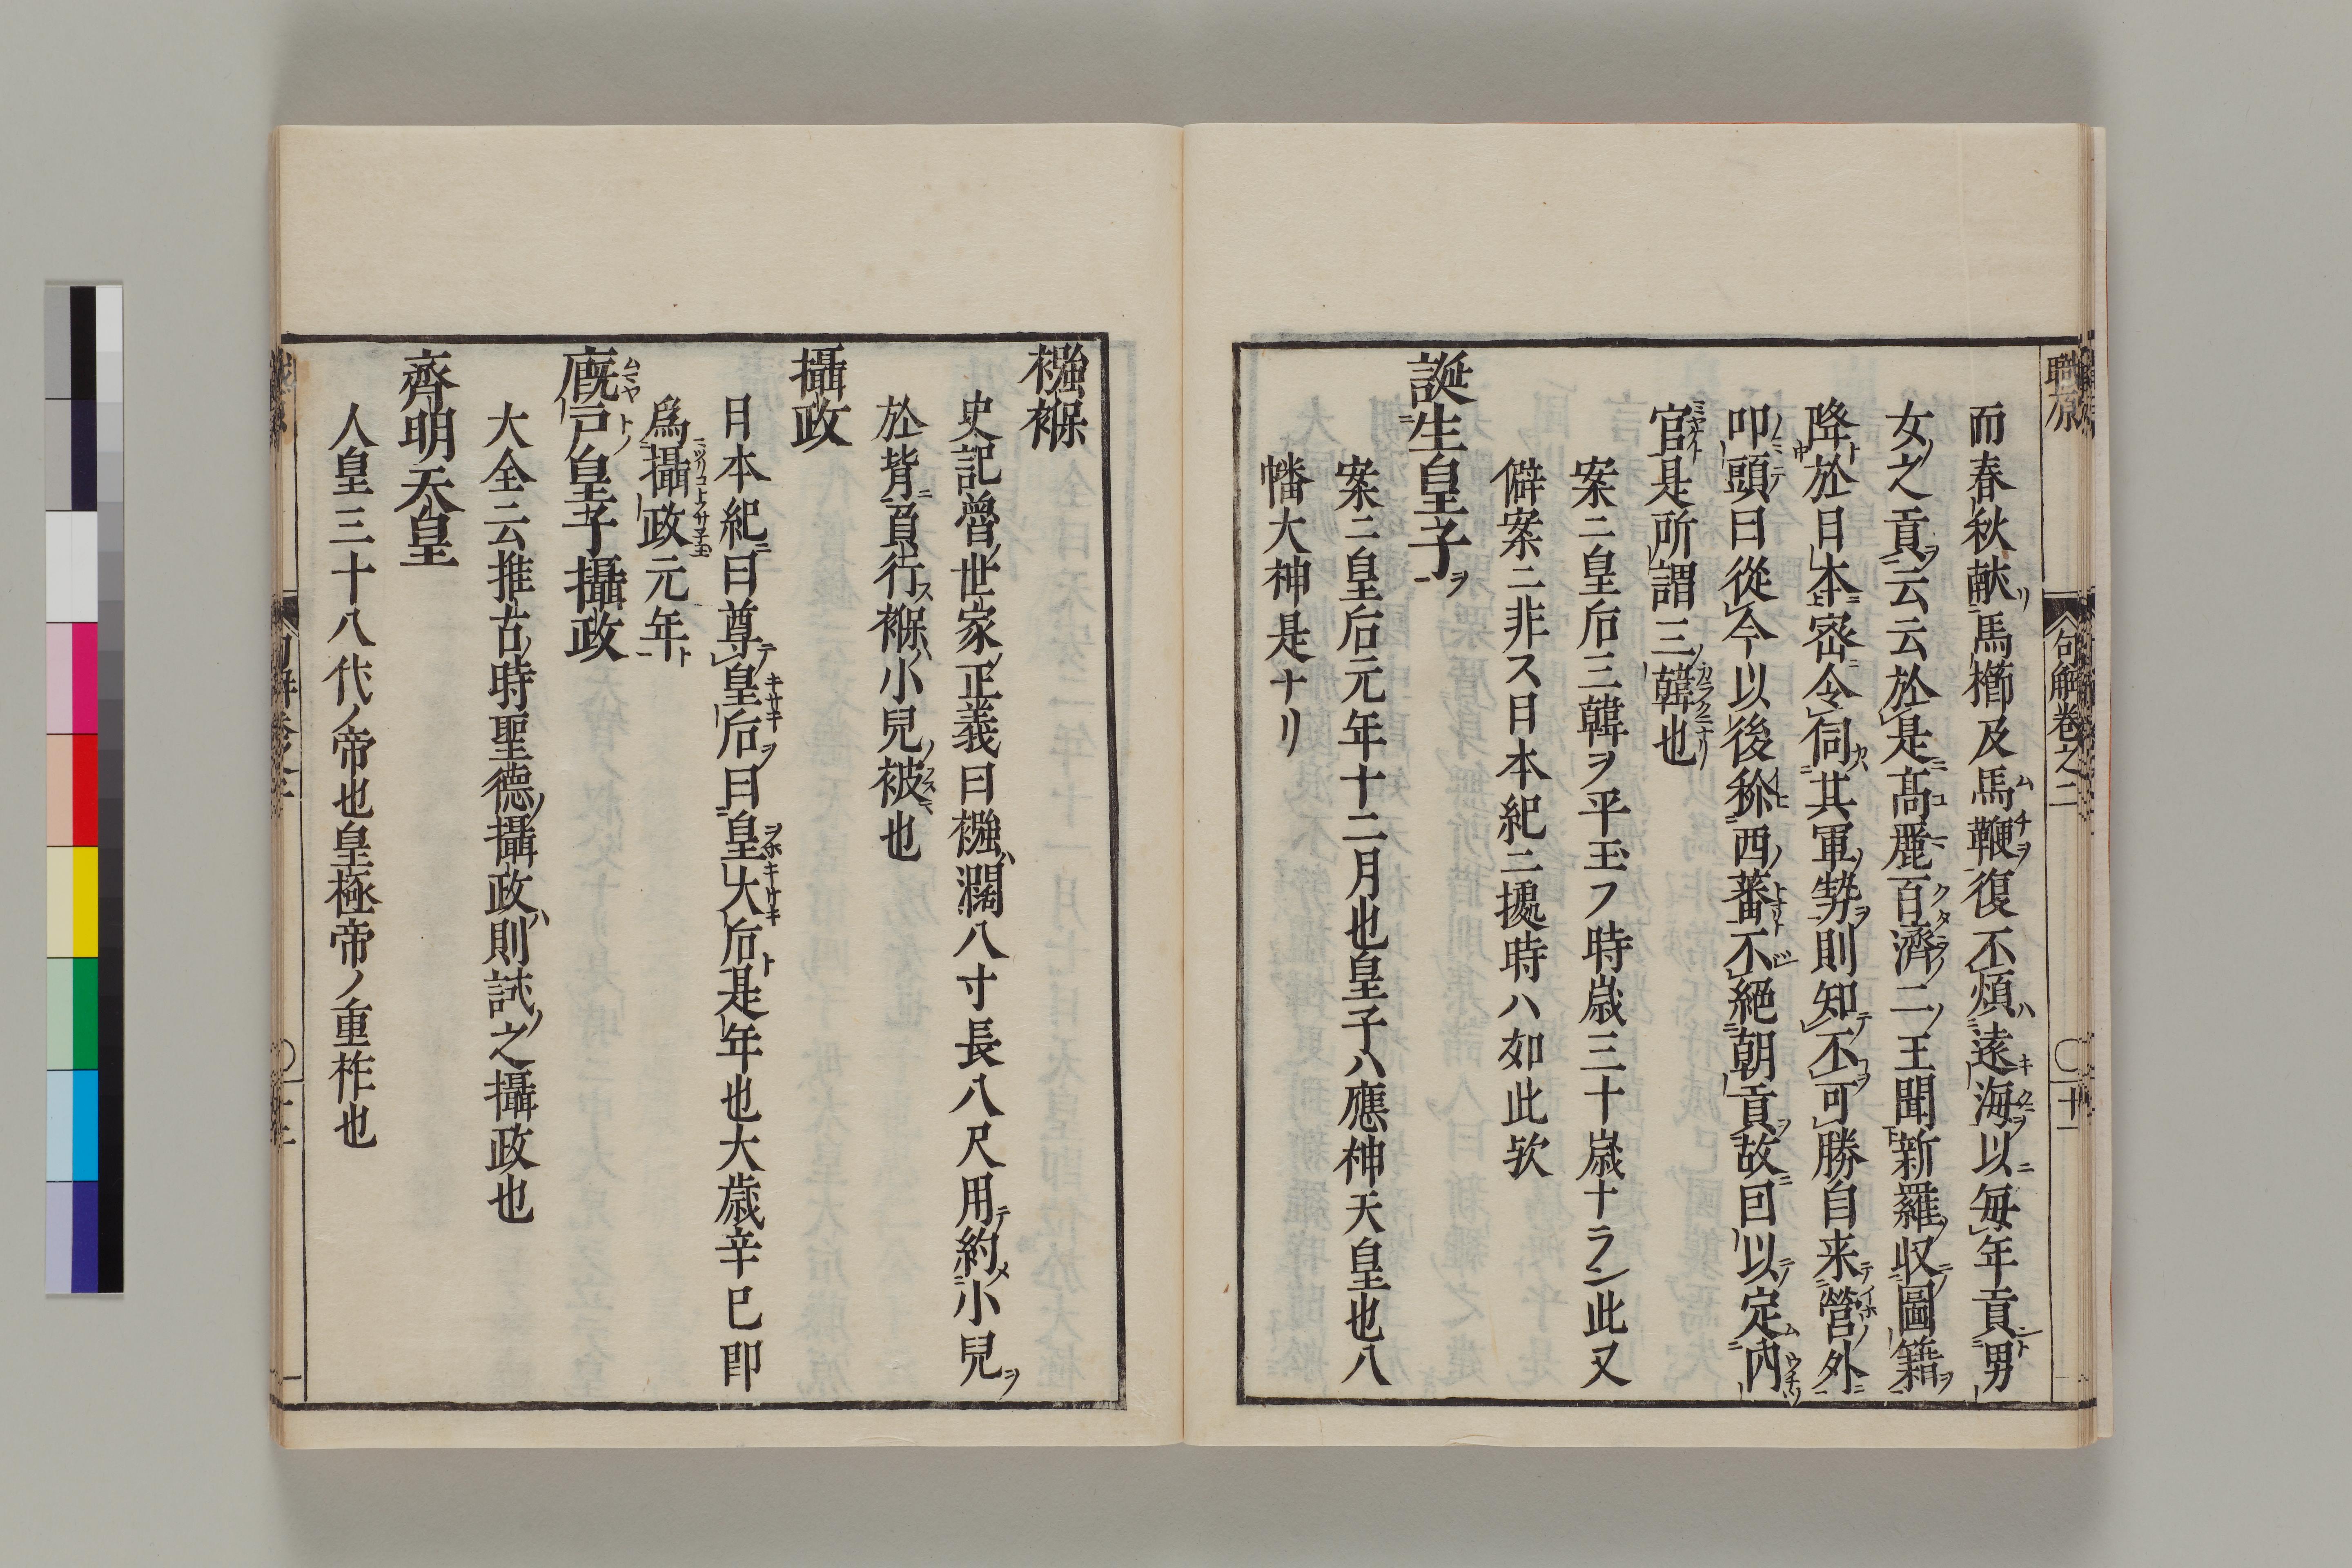 職原 句解卷之二 〇十一
而春秋獻馬櫛及馬鞭復不煩遠海以毎年貢男
女之貢云云於是高麗百濟二王聞新羅収圖籍
降於日本密令伺其軍勢則知不可勝自来營外
叩頭曰從今以後称西蕃不絕朝貢故因以定内
官是所謂三韓也
案ニ皇后三韓ヲ平玉フ時歳三十歳ナラン此又
僻案ニ非ス日本紀ニ據時ハ如此歟
誕生皇子ヲ
案ニ皇后元年十二月也皇子ハ應神天皇也八
幡大神是ナリ
襁褓
史記曾世家正義曰襁濶八寸長八尺用約小兒
於背負行褓小兒被也
攝政
日本紀曰尊皇后曰皇大后是年也大歳辛巳即
爲攝政元年
廐戸皇子攝政
大全云推古時聖德攝政則試之攝政也
齊明天皇
人皇三十八代ノ帝也皇極帝ノ重祚也